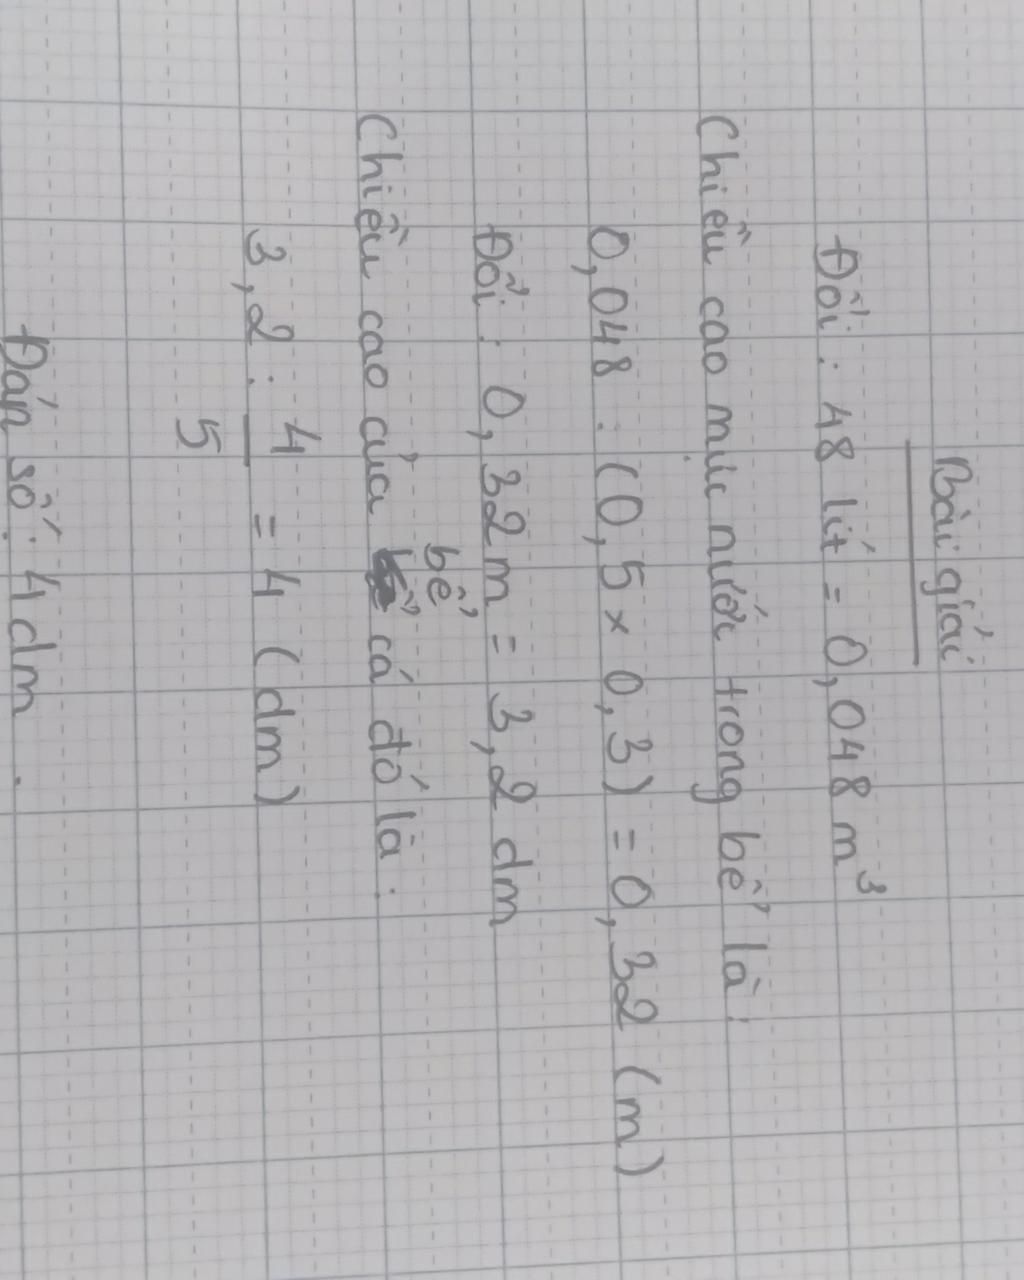 Bài giải
Đổi: 48 lít = 0,048 m³
Chiều cao mực nước trong bể là:
0,048 : (0,5 × 0,3) = 0,32 (m)
Đổi: 0,32m = 3,2 dm
bể
Chiều cao của cá đó là:
3,2 : 4/5 = 4 (dm)
Đáp số: 4dm.